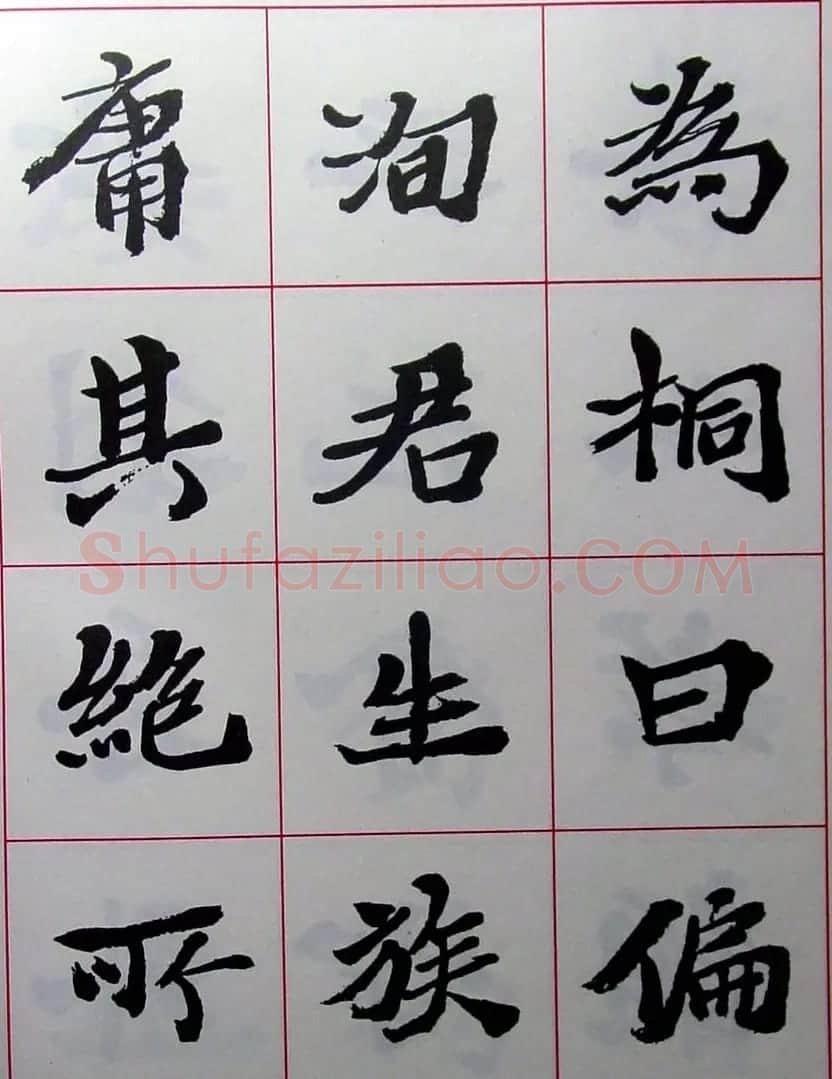 為桐曰偏
洵君生族
庸其絕所
Shufaziliao.COM